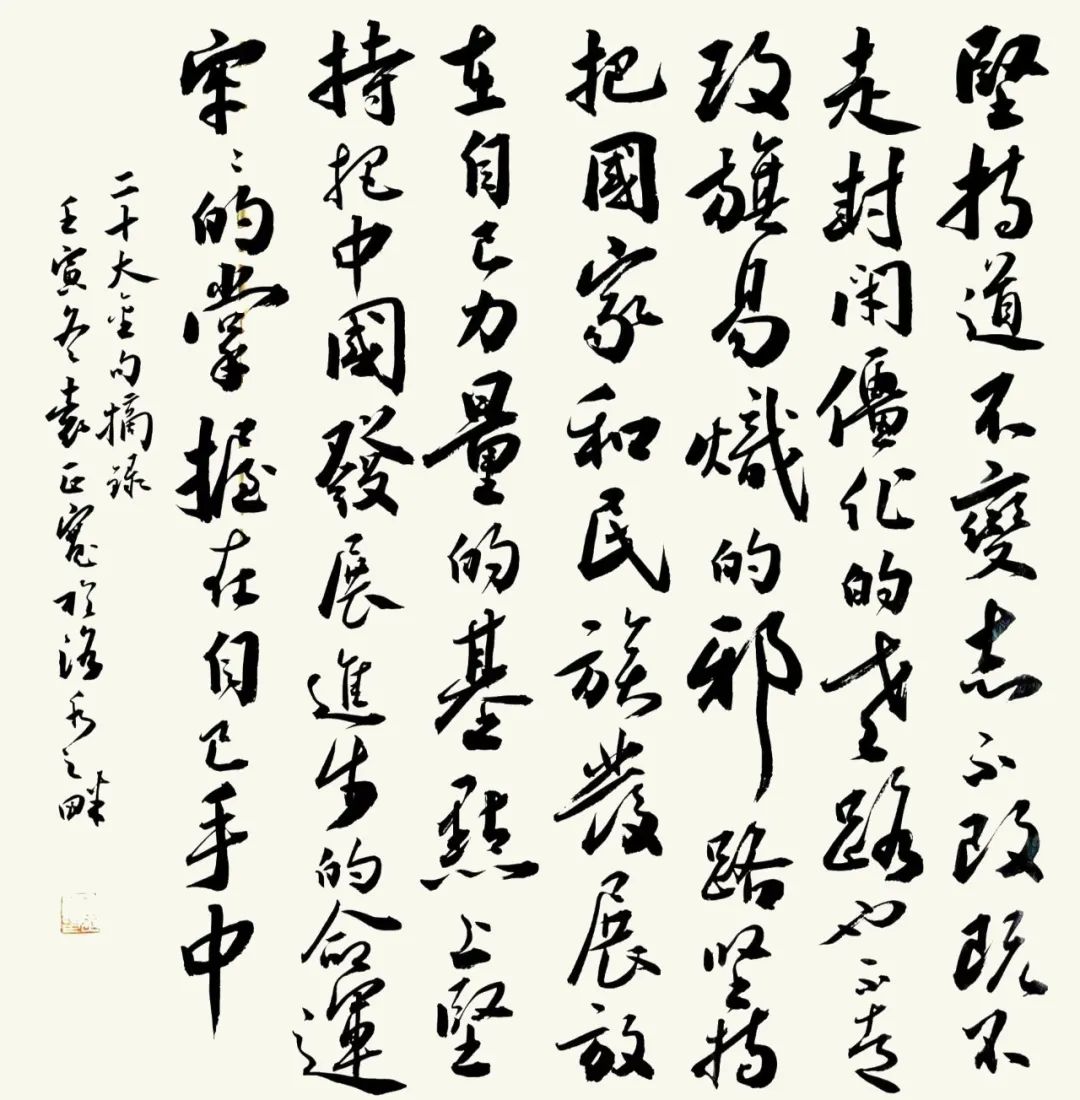 堅持道不變志不改既不
走封闭僵化的老路也不走
改旗易熾的邪路坚持
把國家和民族發展放
在自己力量的基點上堅
持把中國發展進步的命運
牢々的掌握在自己手中
二十大金句摘录
壬寅冬袁正寬於洛水之畔